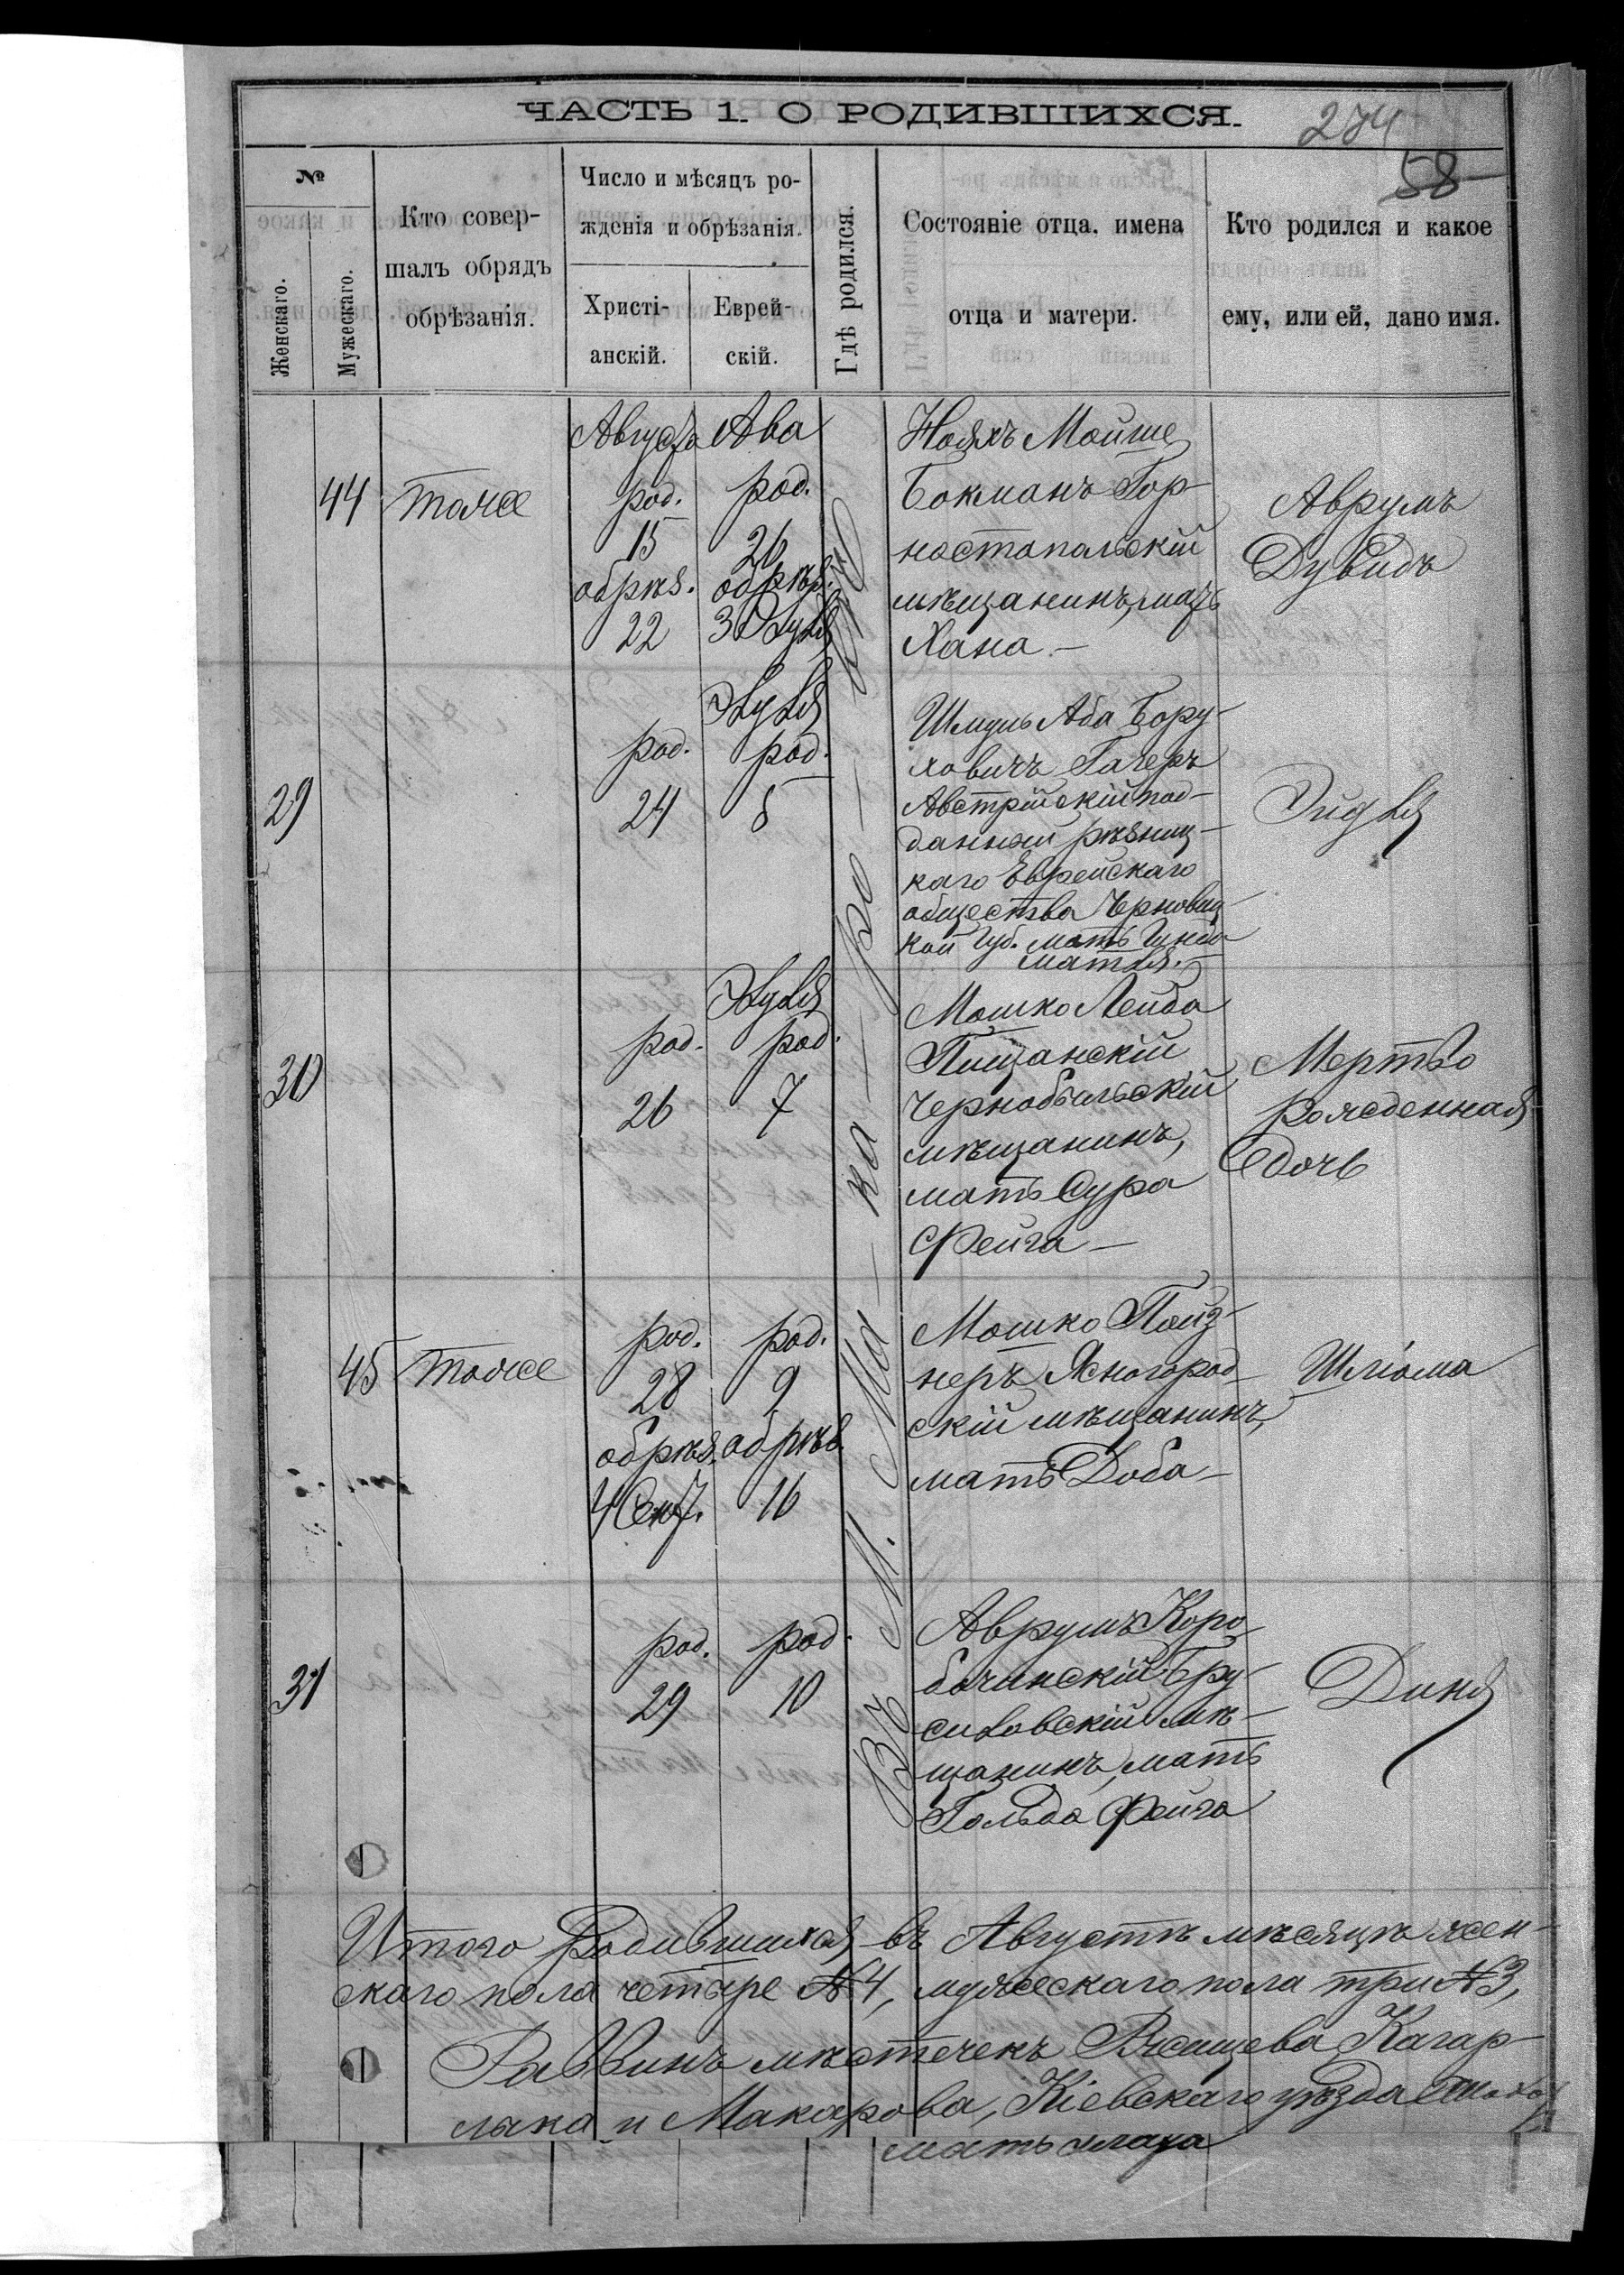 ЧАСТЬ 1. О РОДИВШИХСЯ.
274
58
№
Женскаго.
Мужескаго.
Кто совер-
шалъ обрядъ
обрѣзанія.
Число и мѣсяцъ ро-
жденія и обрѣзанія.
Христі-
анскій.
Еврей-
скій.
Гдѣ родился.
Состояніе отца, имена
отца и матери.
Кто родился и какое
ему, или ей, дано имя.
Въ М. Ма — ка — ро —
44
тоже
Августъ
род.
15
обрѣз.
22
Ава
род.
26
обрѣз.
3 Элуля
Нояхъ Мойше
Бокманъ Гор-
ностапольскій
мѣщанинъ, мать
Хана —
Аврумъ
Дувидъ
29
род.
24
Элуля
род.
5
Шмуль Аба Бору-
ховичъ Гагеръ
Австрійскій под-
данный
каго Еврейскаго
общества Черновиц-
кой Губ. мать
Матля. —
Эйдля
30
род.
26
Элуля
род.
7
Мошко Лейба
Пищанскій
Чернобыльскій
мѣщанинъ,
мать Сура
Фейга —
Мертво
рожденная
дочь
45
тоже
род.
28
обрѣз.
4 Сент.
род.
9
обрѣз.
16
Мошко Пойз-
неръ Ясногород-
скій мѣщанинъ,
мать Доба —
Шліома
31
род.
29
род.
10
Аврумъ Коро
бочинскій Бру-
силовскій мѣ-
щанинъ, мать
Гольда Фейга
Диня
Итого Родившихся въ Августѣ мѣсяцѣ жен-
скаго пола четыре № 4, мужескаго пола три № 3,
Раввинъ мѣстечекъ Ржищева Кагар-
лыка и Макарова, Кіевскаго уѣзда
мать